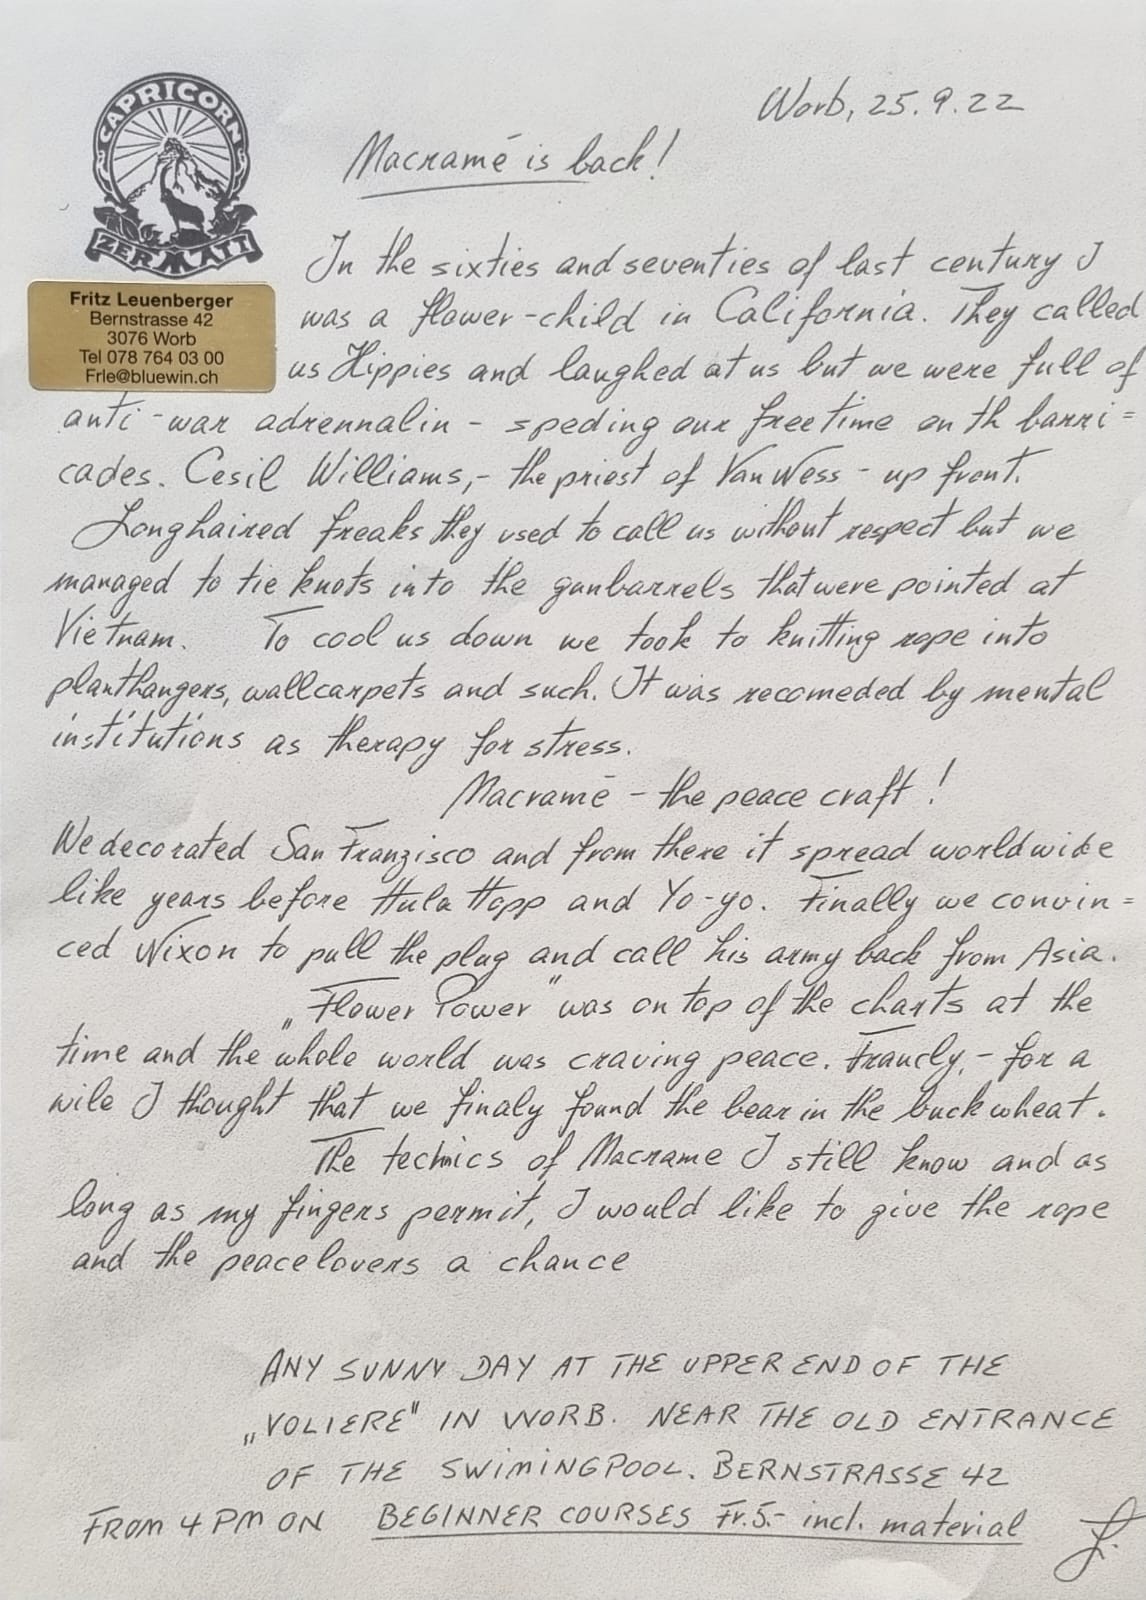 CAPRICORN
ZERMATT
Worb, 25.9.22
Macramé is back!
Fritz Leuenberger
Bernstrasse 42
3076 Worb
Tel 078 764 03 00
Frle@bluewin.ch
In the sixties and seventies of last century I
was a flower-child in California. They called
us Hippies and laughed at us but we were full of
anti-war adrennalin - speding our freetime on th barri=
cades. Cesil Williams,- the priest of Van Wess - up front.
Longhaired freaks they used to call us without respect but we
managed to tie knots into the gunbarrels that were pointed at
Vietnam. To cool us down we took to knitting rope into
planthangers, wallcarpets and such. It was recomeded by mental
institutions as therapy for stress.
Macramé - the peace craft!
We decorated San Franzisco and from there it spread worldwide
like years before Hula Hopp and Yo-yo. Finally we convin=
ced Nixon to pull the plug and call his army back from Asia.
„Flower Power" was on top of the charts at the
time and the whole world was craving peace. Francly,- for a
wile I thought that we finaly found the bear in the buckwheat.
The technics of Macrame I still know and as
long as my fingers permit, I would like to give the rope
and the peacelovers a chance
ANY SUNNY DAY AT THE UPPER END OF THE
„VOLIERE" IN WORB. NEAR THE OLD ENTRANCE
OF THE SWIMINGPOOL. BERNSTRASSE 42
FROM 4 PM ON BEGINNER COURSES Fr.5.- incl. material